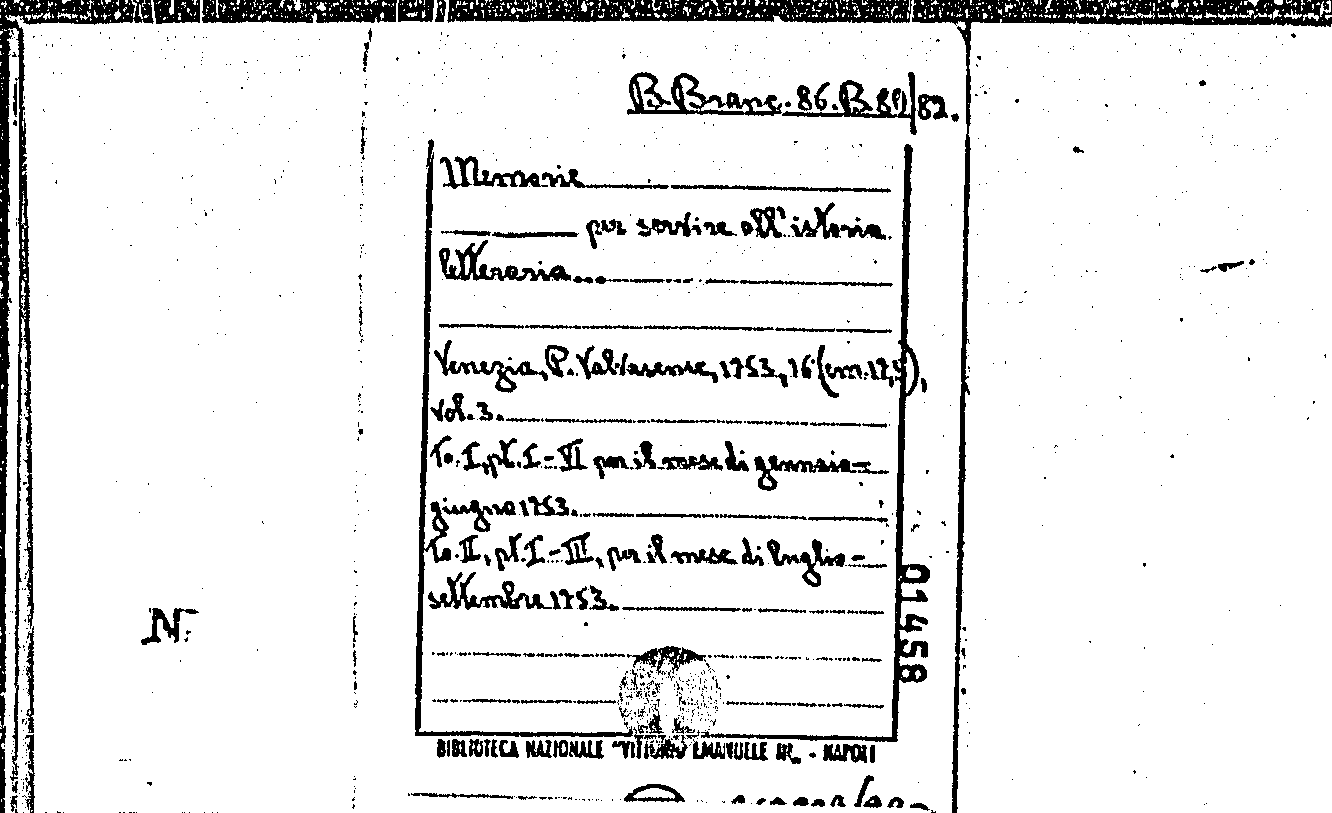 B. Branc. 86. B 80/82.
Memorie
per servire all'istoria
letteraria...
Venezia, P. Valvasense, 1753, 16° (cm. 17,5),
vol. 3.
To. I, pt. I-VI per il mese di gennaio-
giugno 1753.
To. II, pt. I-III, per il mese di luglio-
settembre 1753.
01458
N.
BIBLIOTECA NAZIONALE "VITTORIO EMANUELE III" - NAPOLI